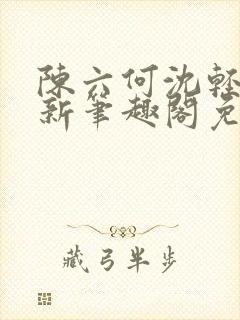 陳六何沈輕
新筆趣閣免
藏弓半步